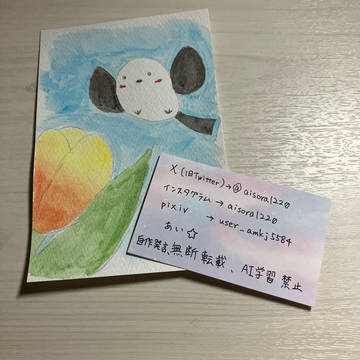 X (旧Twitter)→@aisora1220
インスタグラム→aisora1220
pixiv →user_amkj5584
あい☆
自作発言、無断転載、AI学習 禁止